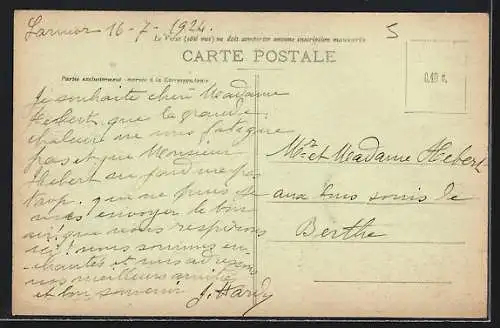 Larmor 16-7-1924.
Le Verso (côté vue) ne doit comporter aucune inscription manuscrite
CARTE POSTALE
5
0.40 c.
Partie exclusivement réservée à la Correspondance
Je souhaite chère Madame
Hébert que la grande
chaleur ne vous fatigue
pas et que Monsieur
Hébert ne fond pas
trop. que ne puis-je
vous envoyer le bon
air que nous respirons
ici! nous sommes en-
chantés et vous adressons
nos meilleures amitiés
et bon souvenir J. Hardy
Mr. et Madame Hebert
aux bons soins de
Berthe